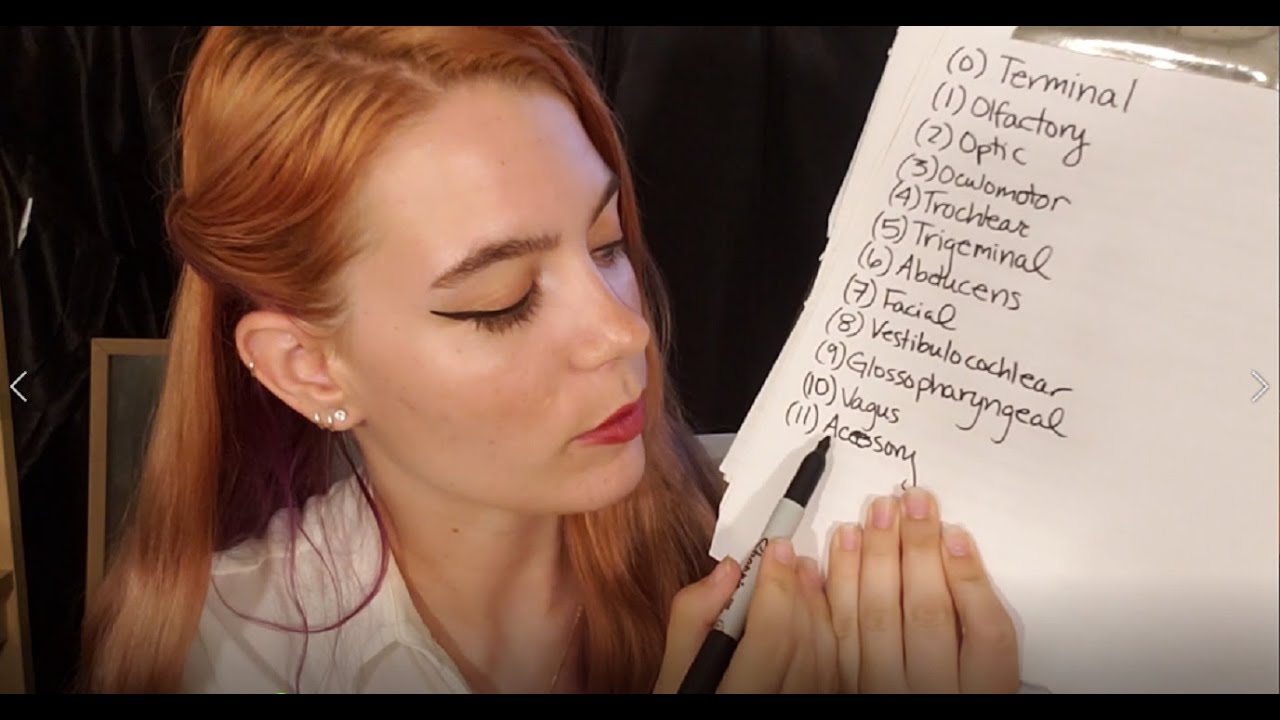 (0) Terminal
(1) Olfactory
(2) Optic
(3) Oculomotor
(4) Trochlear
(5) Trigeminal
(6) Abducens
(7) Facial
(8) Vestibulocochlear
(9) Glossopharyngeal
(10) Vagus
(11) Accessory
Sharpie